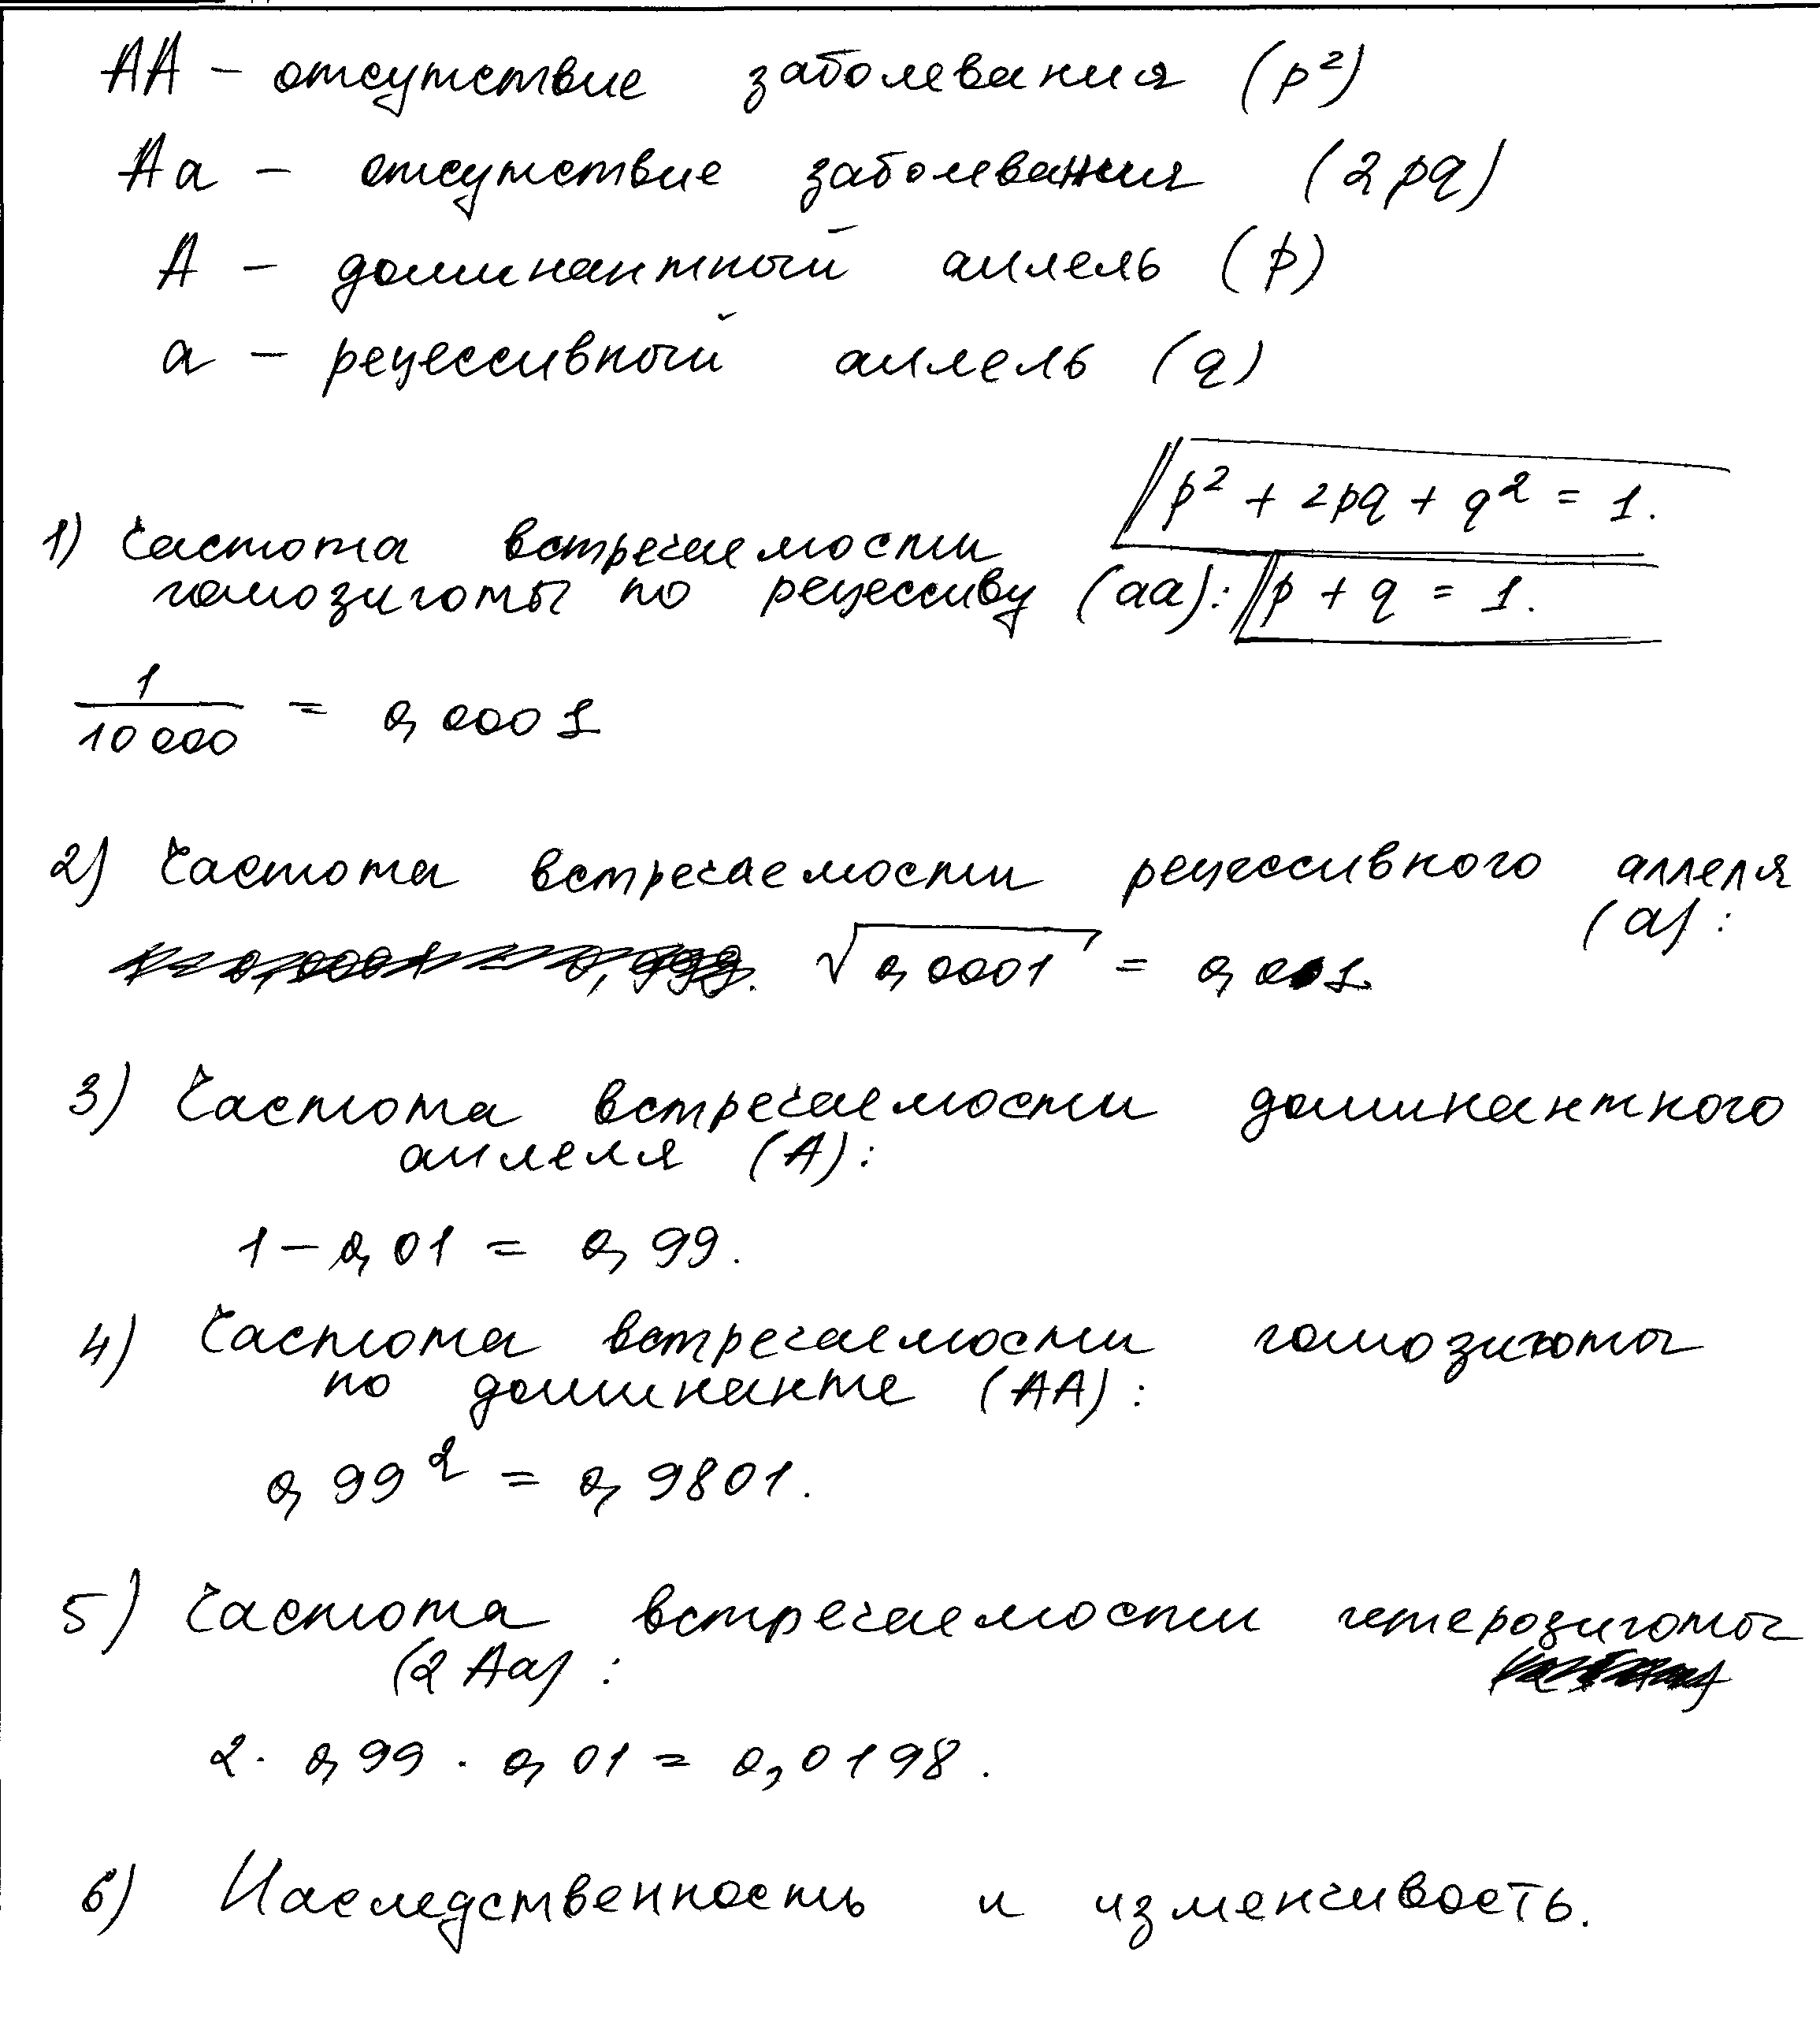 АА – отсутствие заболевания (p²)
Аа – отсутствие заболевания (2pq)
А – доминантный аллель (p)
а – рецессивный аллель (q)
p² + 2pq + q² = 1.
1) Частота встречаемости
гомозиготы по рецессиву (аа): p + q = 1.
1/10 000 = 0,0001
2) Частота встречаемости рецессивного аллеля
(а):
√0,0001 = 0,01.
3) Частота встречаемости доминантного
аллеля (А):
1 – 0,01 = 0,99.
4) Частота встречаемости гомозиготы
по доминанте (АА):
0,99² = 0,9801.
5) Частота встречаемости гетерозиготы
(2 Аа) :
2 · 0,99 · 0,01 = 0,0198.
6) Наследственность и изменчивость.